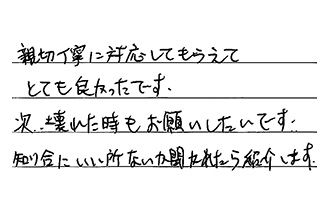 親切丁寧に対応してもらえて
とても良かったです.
次.壊れた時もお願いしたいです.
知り合にいい所ないか聞かれたら紹介します.